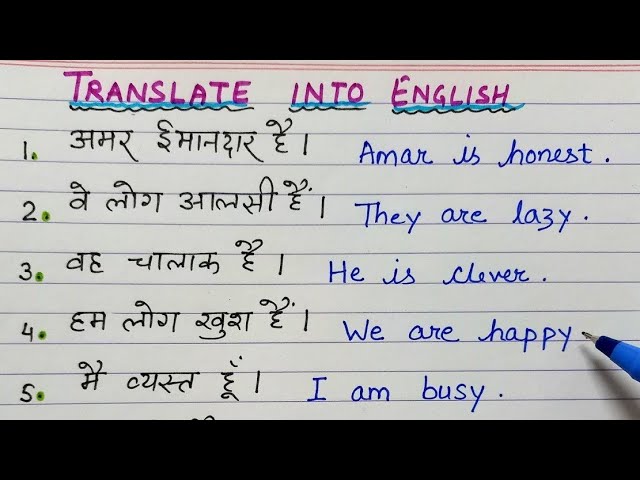 TRANSLATE INTO ENGLISH
1. अमर ईमानदार है। Amar is honest.
2. वे लोग आलसी हैं। They are lazy.
3. वह चालाक है। He is clever.
4. हम लोग खुश हैं। We are happy
5. मै व्यस्त हूँ। I am busy.